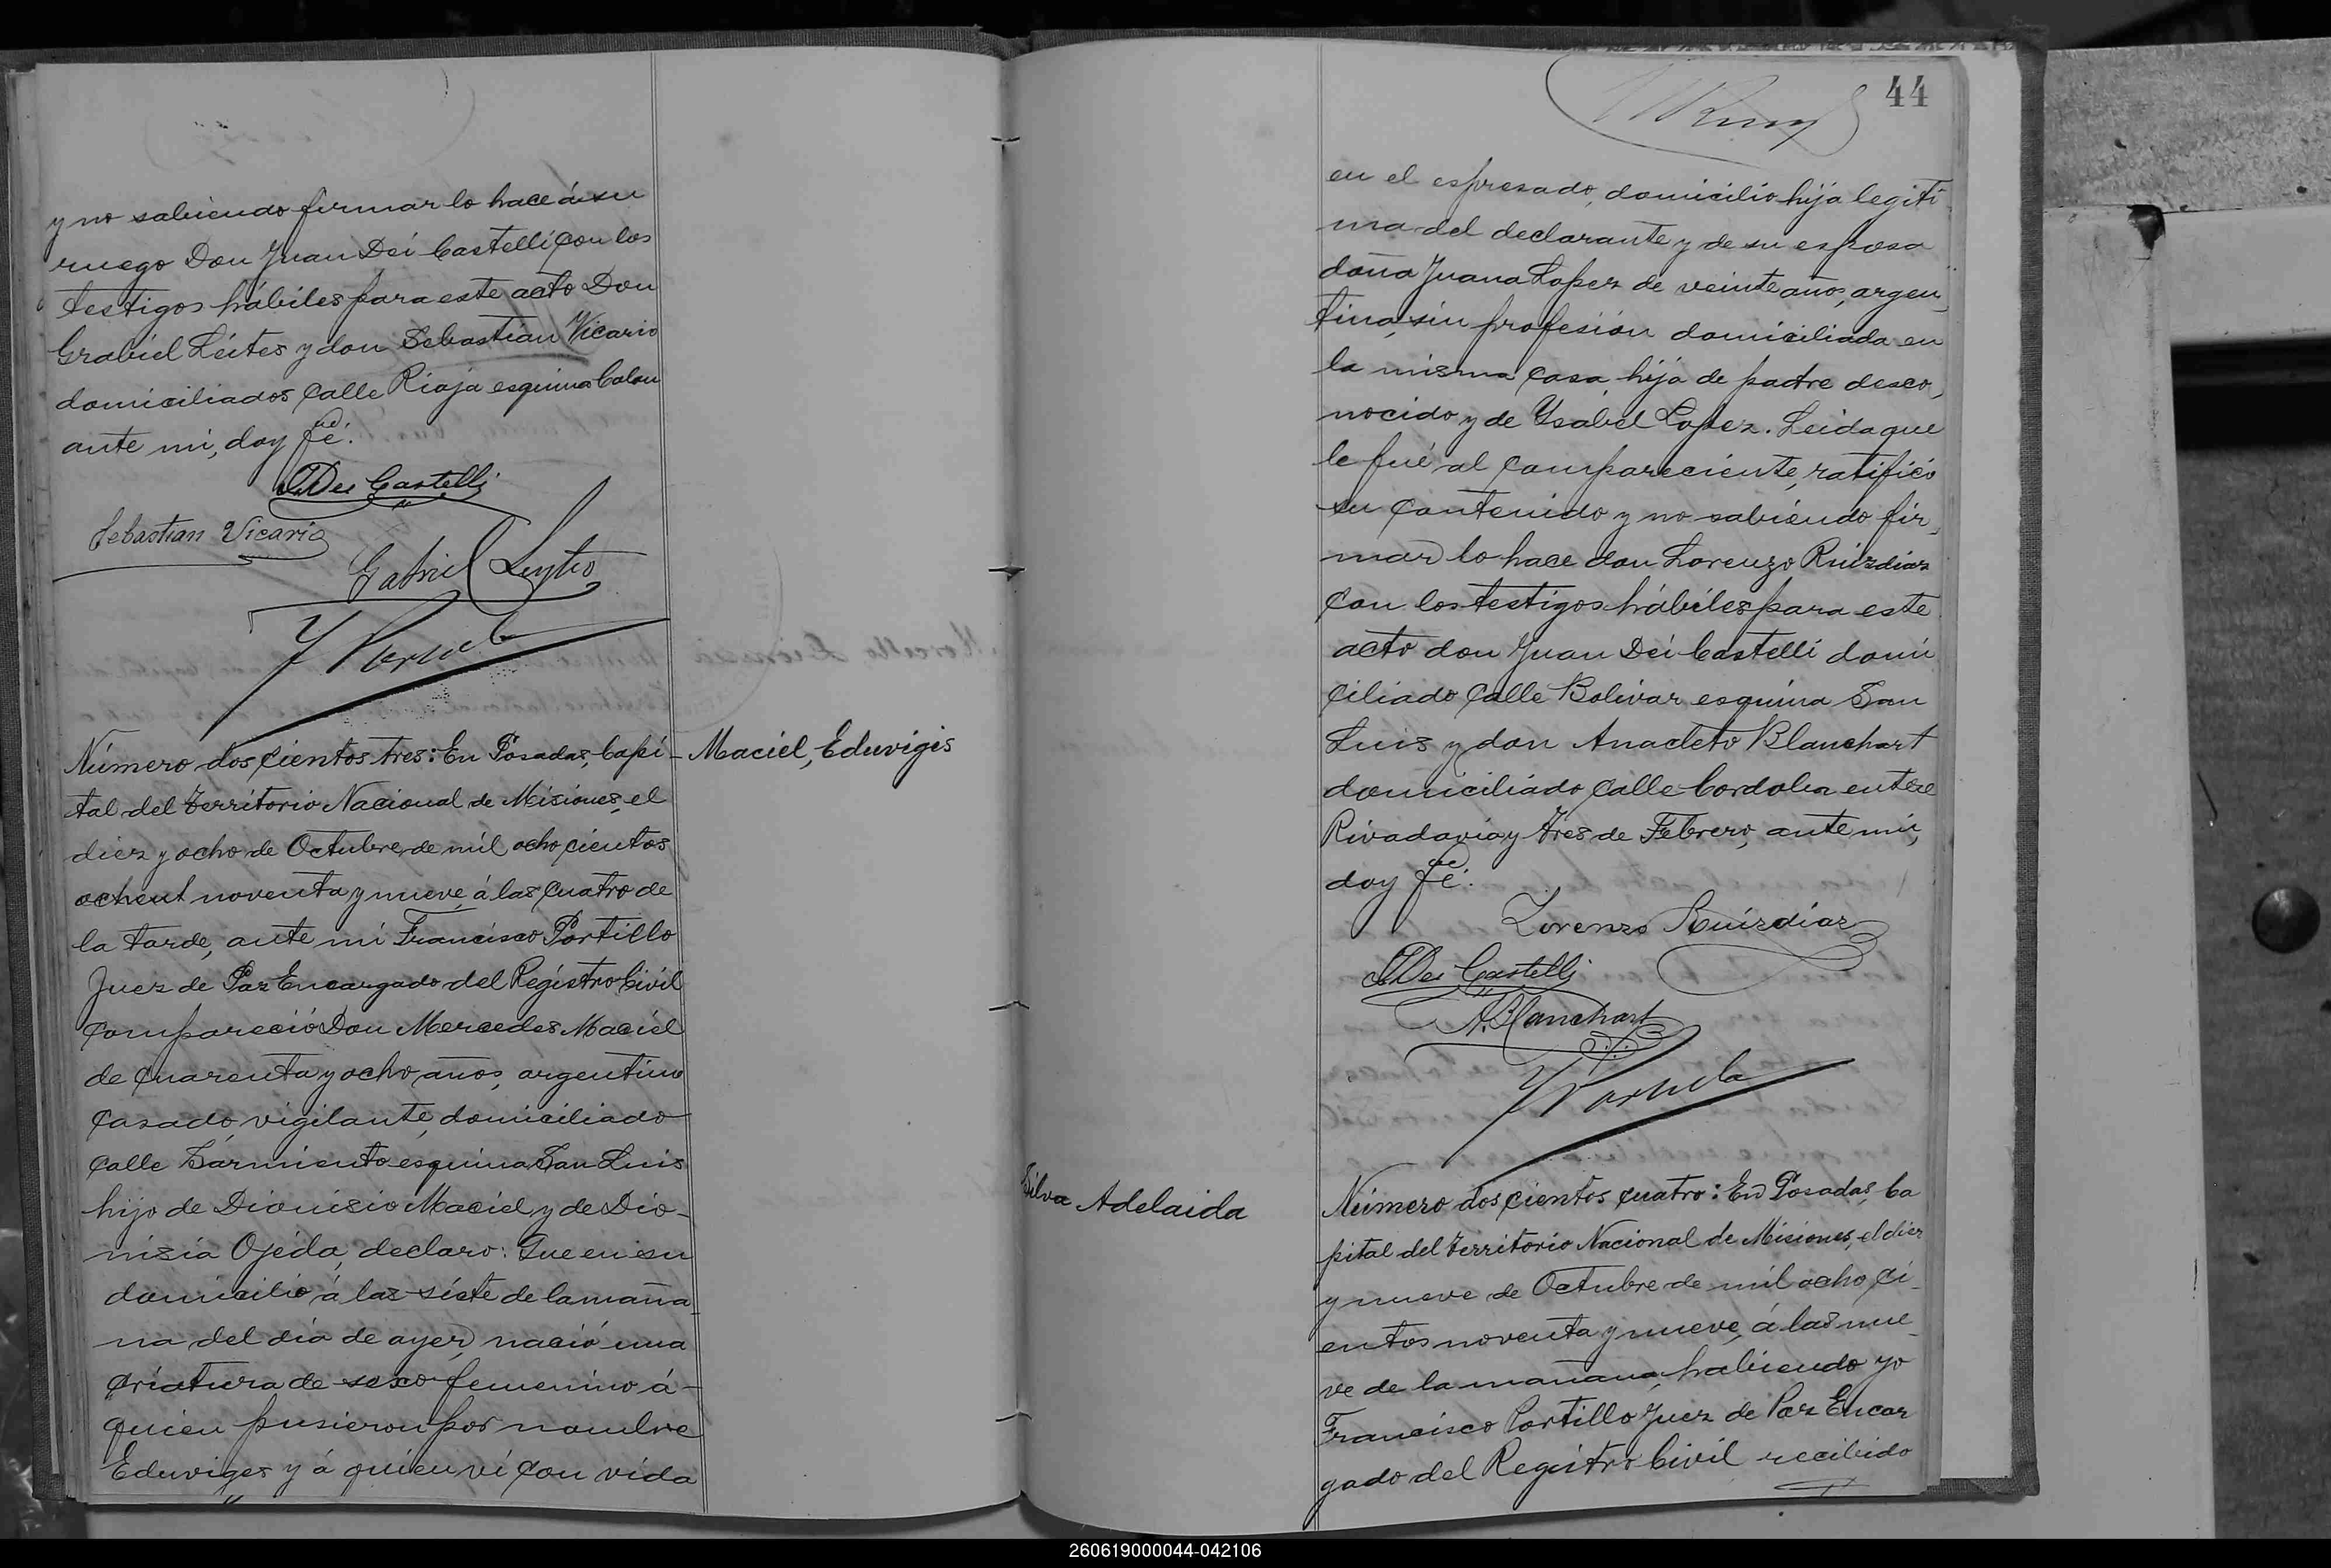 y no sabiendo firmar lo hace á su
ruego Don Juan Dei Castelli con los
testigos hábiles para este acto Don
Grabiel Léites y don Sebastian Vicario
domiciliados calle Rioja esquina Colon
ante mi, doy fé.
JDei Castelli
Sebastian Vicario
Gabriel Leytes
Número dos cientos tres: En Posadas, Capi-
Maciel, Eduvigis
tal del Territorio Nacional de Misiones, el
diez y ocho de Octubre de mil ocho cientos
ochent noventa y nueve á las cuatro de
la tarde, ante mi Francisco Portillo
Juez de Paz Encargado del Registro Civil
compareció Don Mercedes Maciel
de cuarenta y ocho años, argentino
casado, vigilante, domiciliado
calle Sarmiento esquina San Luis
hijo de Dionisio Maciel y de Dio-
nisia Ojeda, declaro: Que en su
domicilio á las siete de la maña-
na del dia de ayer, nació una
criatura de sexo femenino á-
quien pusieron por nombre
Eduviges y á quien vi con vida
44
en el espresado, domicilio hija legiti
ma del declarante y de su esposa
doña Juana Lopez de veinte años, argen,
tina, sin profesión domiciliada en
la misma casa hija de padre desco,
nocido y de Ysabel Lopez. Leida que
le fué al compareciente, ratificó
su contenido y no sabiendo fir,
mar lo hace don Lorenzo Ruizdiaz
con los testigos hábiles para este
acto don Juan Dei Castelli domi
ciliado calle Bolivar esquina San
Luis y don Anacleto Blanchart
domiciliado calle Cordoba entre
Rivadavia y tres de Febrero, ante mi,
doy fé.
Lorenzo Ruizdiaz
JDei Castelli
A. Blanchart
Silva Adelaida
Número dos cientos cuatro: En Posadas, Ca
pital del Territorio Nacional de Misiones, el diez
y nueve de Octubre de mil ocho ci-
entos noventa y nueve, á las nue-
ve de la mañana, habiendo yo
Francisco Portillo Juez de Paz Encar
gado del Registro Civil recibido
260619000044-042106